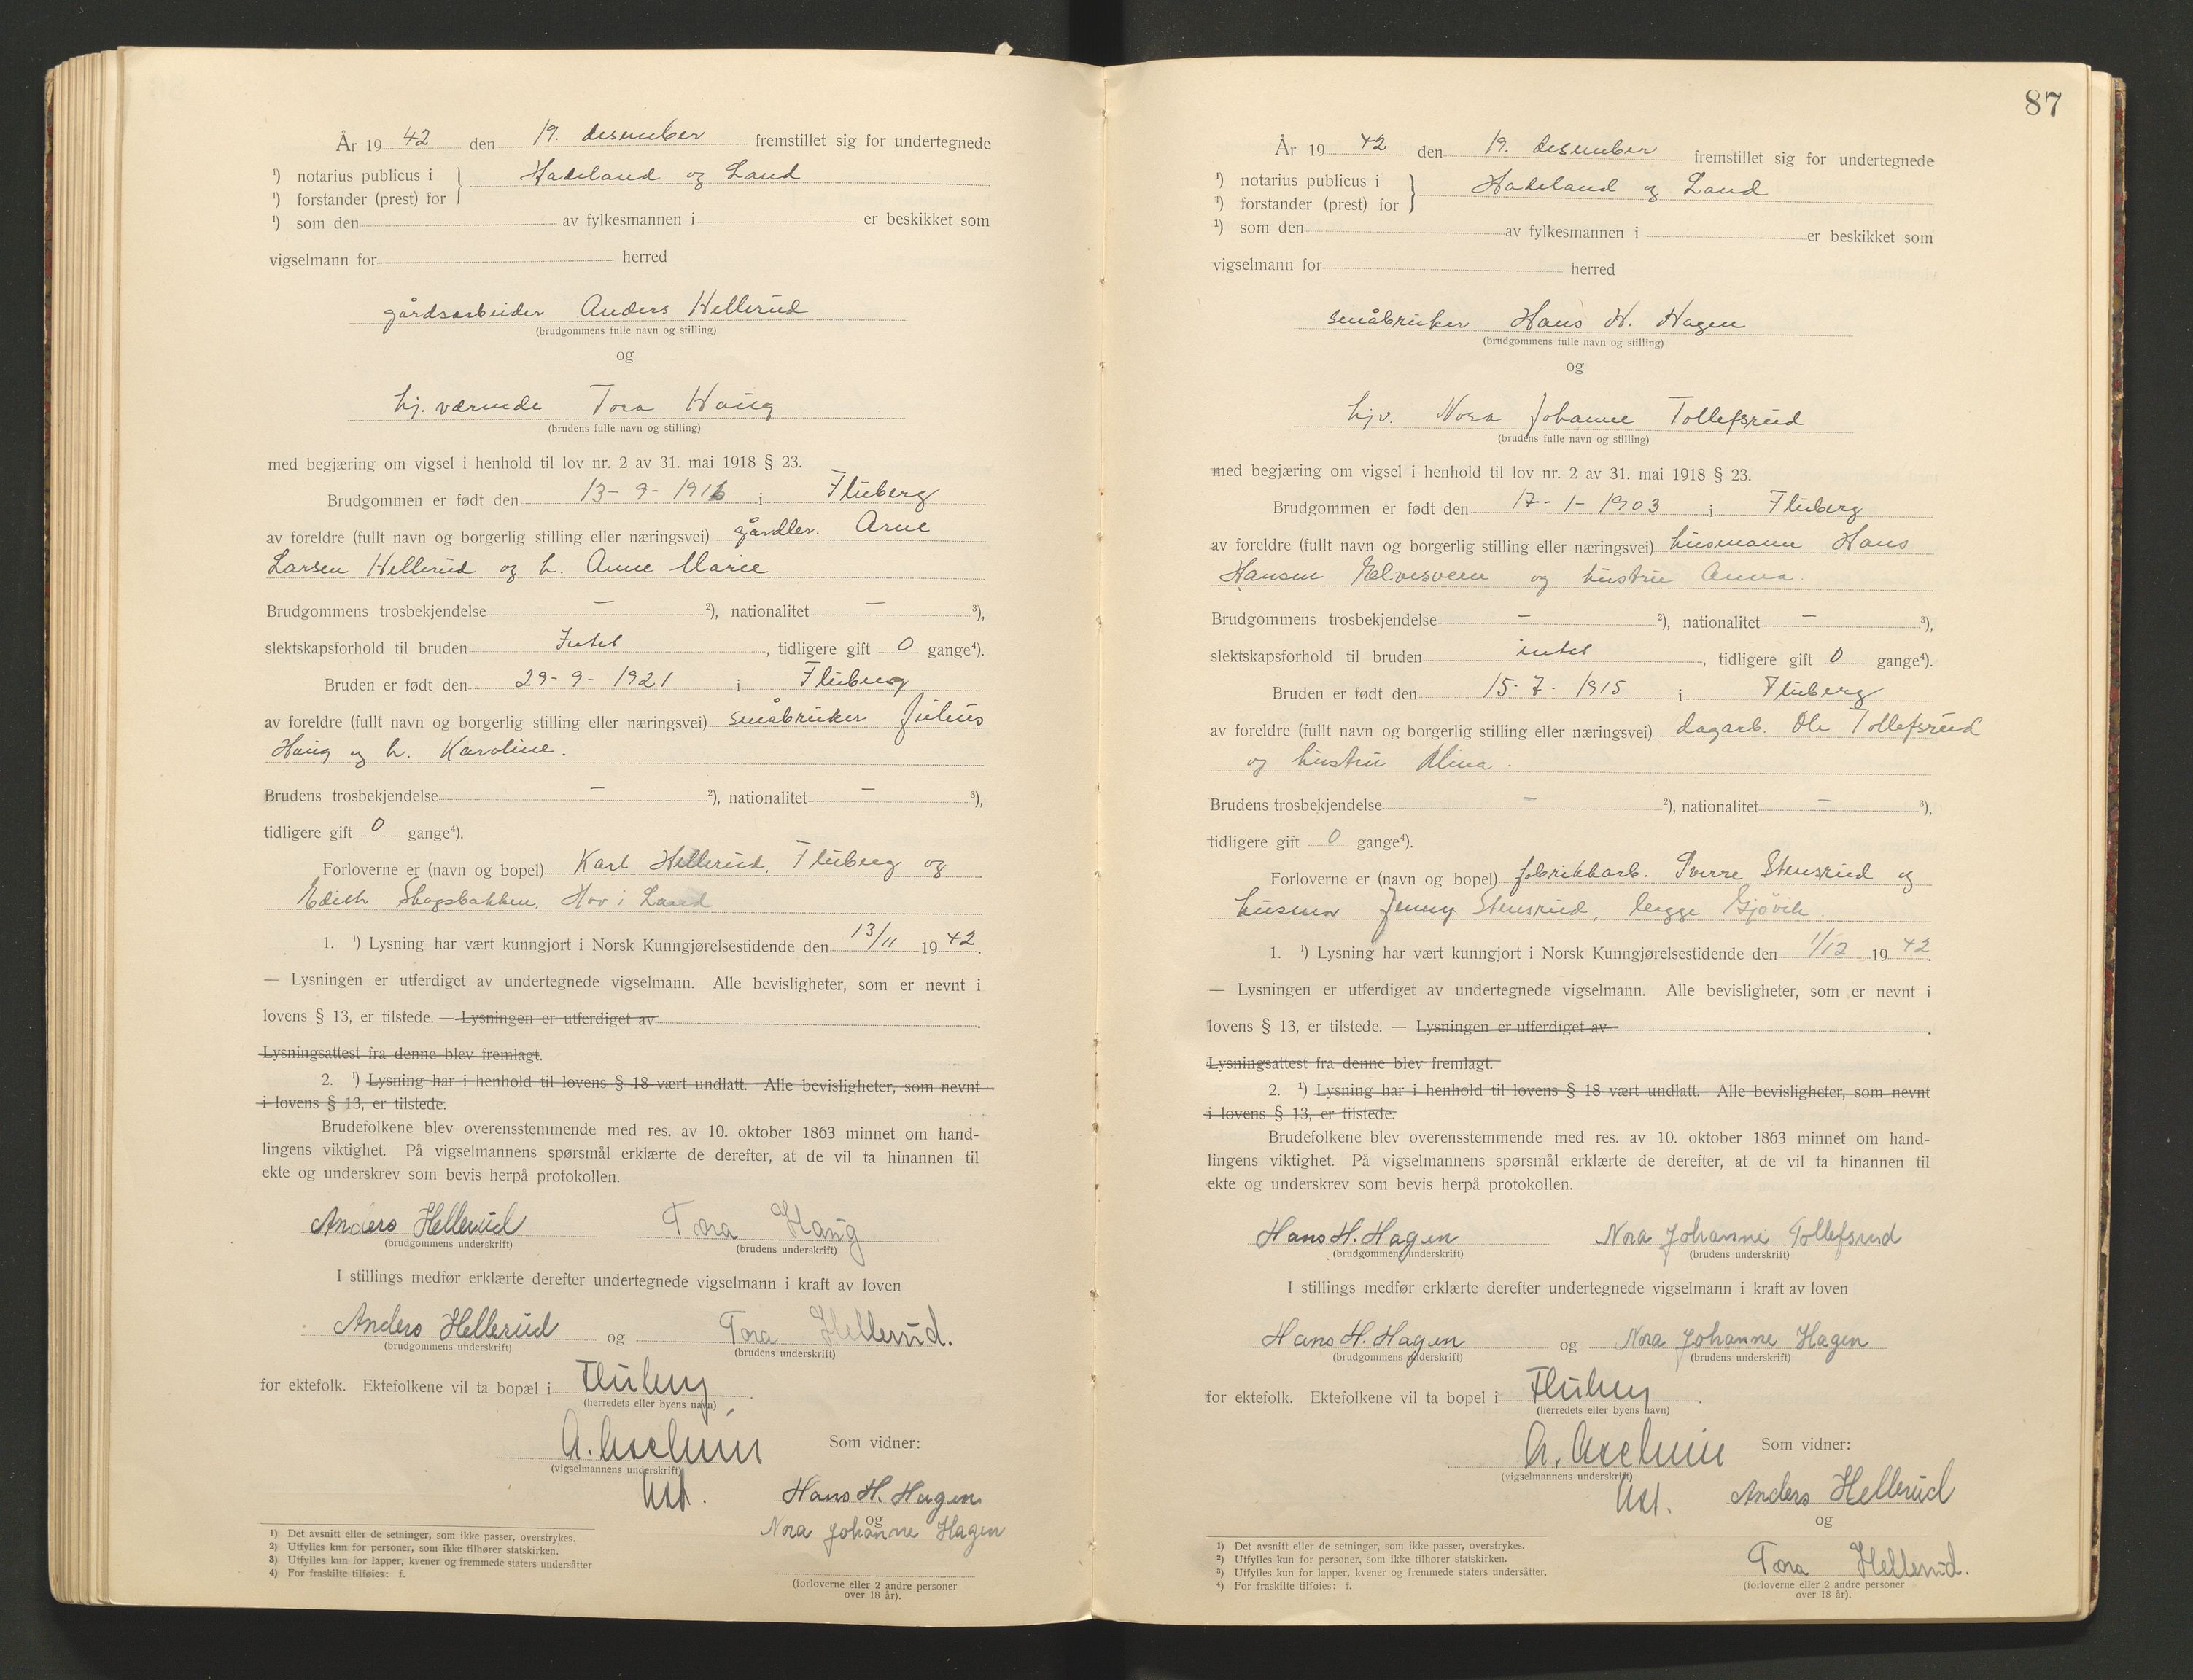 År 19 42 den 19. desember fremstillet sig for undertegnede
¹) notarius publicus i } Hadeland og Land
¹) forstander (prest) for
¹) som den av fylkesmannen i er beskikket som
vigselmann for herred
gårdsarbeider Anders Hellerud
(brudgommens fulle navn og stilling)
og
hj. værende Tora Haug
(brudens fulle navn og stilling)
med begjæring om vigsel i henhold til lov nr. 2 av 31. mai 1918 § 23.
Brudgommen er født den 13-9-1916 i Fluberg
av foreldre (fullt navn og borgerlig stilling eller næringsvei) gårdbr. Arne
Larsen Hellerud og h. Anne Marie
Brudgommens trosbekjendelse — ²), nationalitet — ³),
slektskapsforhold til bruden Intet, tidligere gift 0 gange⁴).
Bruden er født den 29-9-1921 i Fluberg
av foreldre (fullt navn og borgerlig stilling eller næringsvei) småbruker Julius
Haug og h. Karoline.
Brudens trosbekjendelse — ²), nationalitet — ³),
tidligere gift 0 gange⁴).
Forloverne er (navn og bopel) Karl Hellerud, Fluberg og
Edith Skogsbakken, Hov i Land
1. ¹) Lysning har vært kunngjort i Norsk Kunngjørelsestidende den 13/11 1942.
— Lysningen er utferdiget av undertegnede vigselmann. Alle bevisligheter, som er nevnt i
lovens § 13, er tilstede. — Lysningen er utferdiget av .
Lysningsattest fra denne blev fremlagt.
2. ¹) Lysning har i henhold til lovens § 18 vært undlatt. Alle bevisligheter, som nevnt
i lovens § 13, er tilstede.
Brudefolkene blev overensstemmende med res. av 10. oktober 1863 minnet om hand-
lingens viktighet. På vigselmannens spørsmål erklærte de derefter, at de vil ta hinannen til
ekte og underskrev som bevis herpå protokollen.
Anders Hellerud Tora Haug
(brudgommens underskrift) (brudens underskrift)
I stillings medfør erklærte derefter undertegnede vigselmann i kraft av loven
Anders Hellerud og Tora Hellerud.
(brudgommens underskrift) (brudens underskrift)
for ektefolk. Ektefolkene vil ta bopæl i Fluberg.
(herredets eller byens navn)
A. Som vidner:
(vigselmannens underskrift)
Hans H. Hagen
og
Nora Johanne Hagen
(forloverne eller 2 andre personer
over 18 år).
1) Det avsnitt eller de setninger, som ikke passer, overstrykes.
2) Utfylles kun for personer, som ikke tilhører statskirken.
3) Utfylles kun for lapper, kvener og fremmede staters undersåtter
4) For fraskilte tilføies: f.
87
År 19 42 den 19. desember fremstillet sig for undertegnede
¹) notarius publicus i } Hadeland og Land
¹) forstander (prest) for
¹) som den av fylkesmannen i er beskikket som
vigselmann for herred
småbruker Hans H. Hagen
(brudgommens fulle navn og stilling)
og
hjv. Nora Johanne Tollefsrud
(brudens fulle navn og stilling)
med begjæring om vigsel i henhold til lov nr. 2 av 31. mai 1918 § 23.
Brudgommen er født den 17-1-1903 i Fluberg
av foreldre (fullt navn og borgerlig stilling eller næringsvei) husmann Hans
Hansen Elvesveen og hustru Anna.
Brudgommens trosbekjendelse — ²), nationalitet — ³),
slektskapsforhold til bruden intet, tidligere gift 0 gange⁴).
Bruden er født den 15-7-1915 i Fluberg
av foreldre (fullt navn og borgerlig stilling eller næringsvei) dagarb. Ole Tollefsrud
og hustru Alina.
Brudens trosbekjendelse — ²), nationalitet — ³),
tidligere gift 0 gange⁴).
Forloverne er (navn og bopel) fabrikkarb. Sverre Stensrud og
husmor Jenny Stensrud, begge Gjøvik.
1. ¹) Lysning har vært kunngjort i Norsk Kunngjørelsestidende den 1/12 1942.
— Lysningen er utferdiget av undertegnede vigselmann. Alle bevisligheter, som er nevnt i
lovens § 13, er tilstede. — Lysningen er utferdiget av .
Lysningsattest fra denne blev fremlagt.
2. ¹) Lysning har i henhold til lovens § 18 vært undlatt. Alle bevisligheter, som nevnt
i lovens § 13, er tilstede.
Brudefolkene blev overensstemmende med res. av 10. oktober 1863 minnet om hand-
lingens viktighet. På vigselmannens spørsmål erklærte de derefter, at de vil ta hinannen til
ekte og underskrev som bevis herpå protokollen.
Hans H. Hagen Nora Johanne Tollefsrud
(brudgommens underskrift) (brudens underskrift)
I stillings medfør erklærte derefter undertegnede vigselmann i kraft av loven
Hans H. Hagen og Nora Johanne Hagen
(brudgommens underskrift) (brudens underskrift)
for ektefolk. Ektefolkene vil ta bopel i Fluberg.
(herredets eller byens navn)
A. Som vidner:
(vigselmannens underskrift)
Anders Hellerud
og
Tora Hellerud.
(forloverne eller 2 andre personer
over 18 år).
¹) Det avsnitt eller de setninger, som ikke passer, overstrykes.
²) Utfylles kun for personer, som ikke tilhører statskirken.
³) Utfylles kun for lapper, kvener og fremmede staters undersåtter.
⁴) For fraskilte tilføies: f.